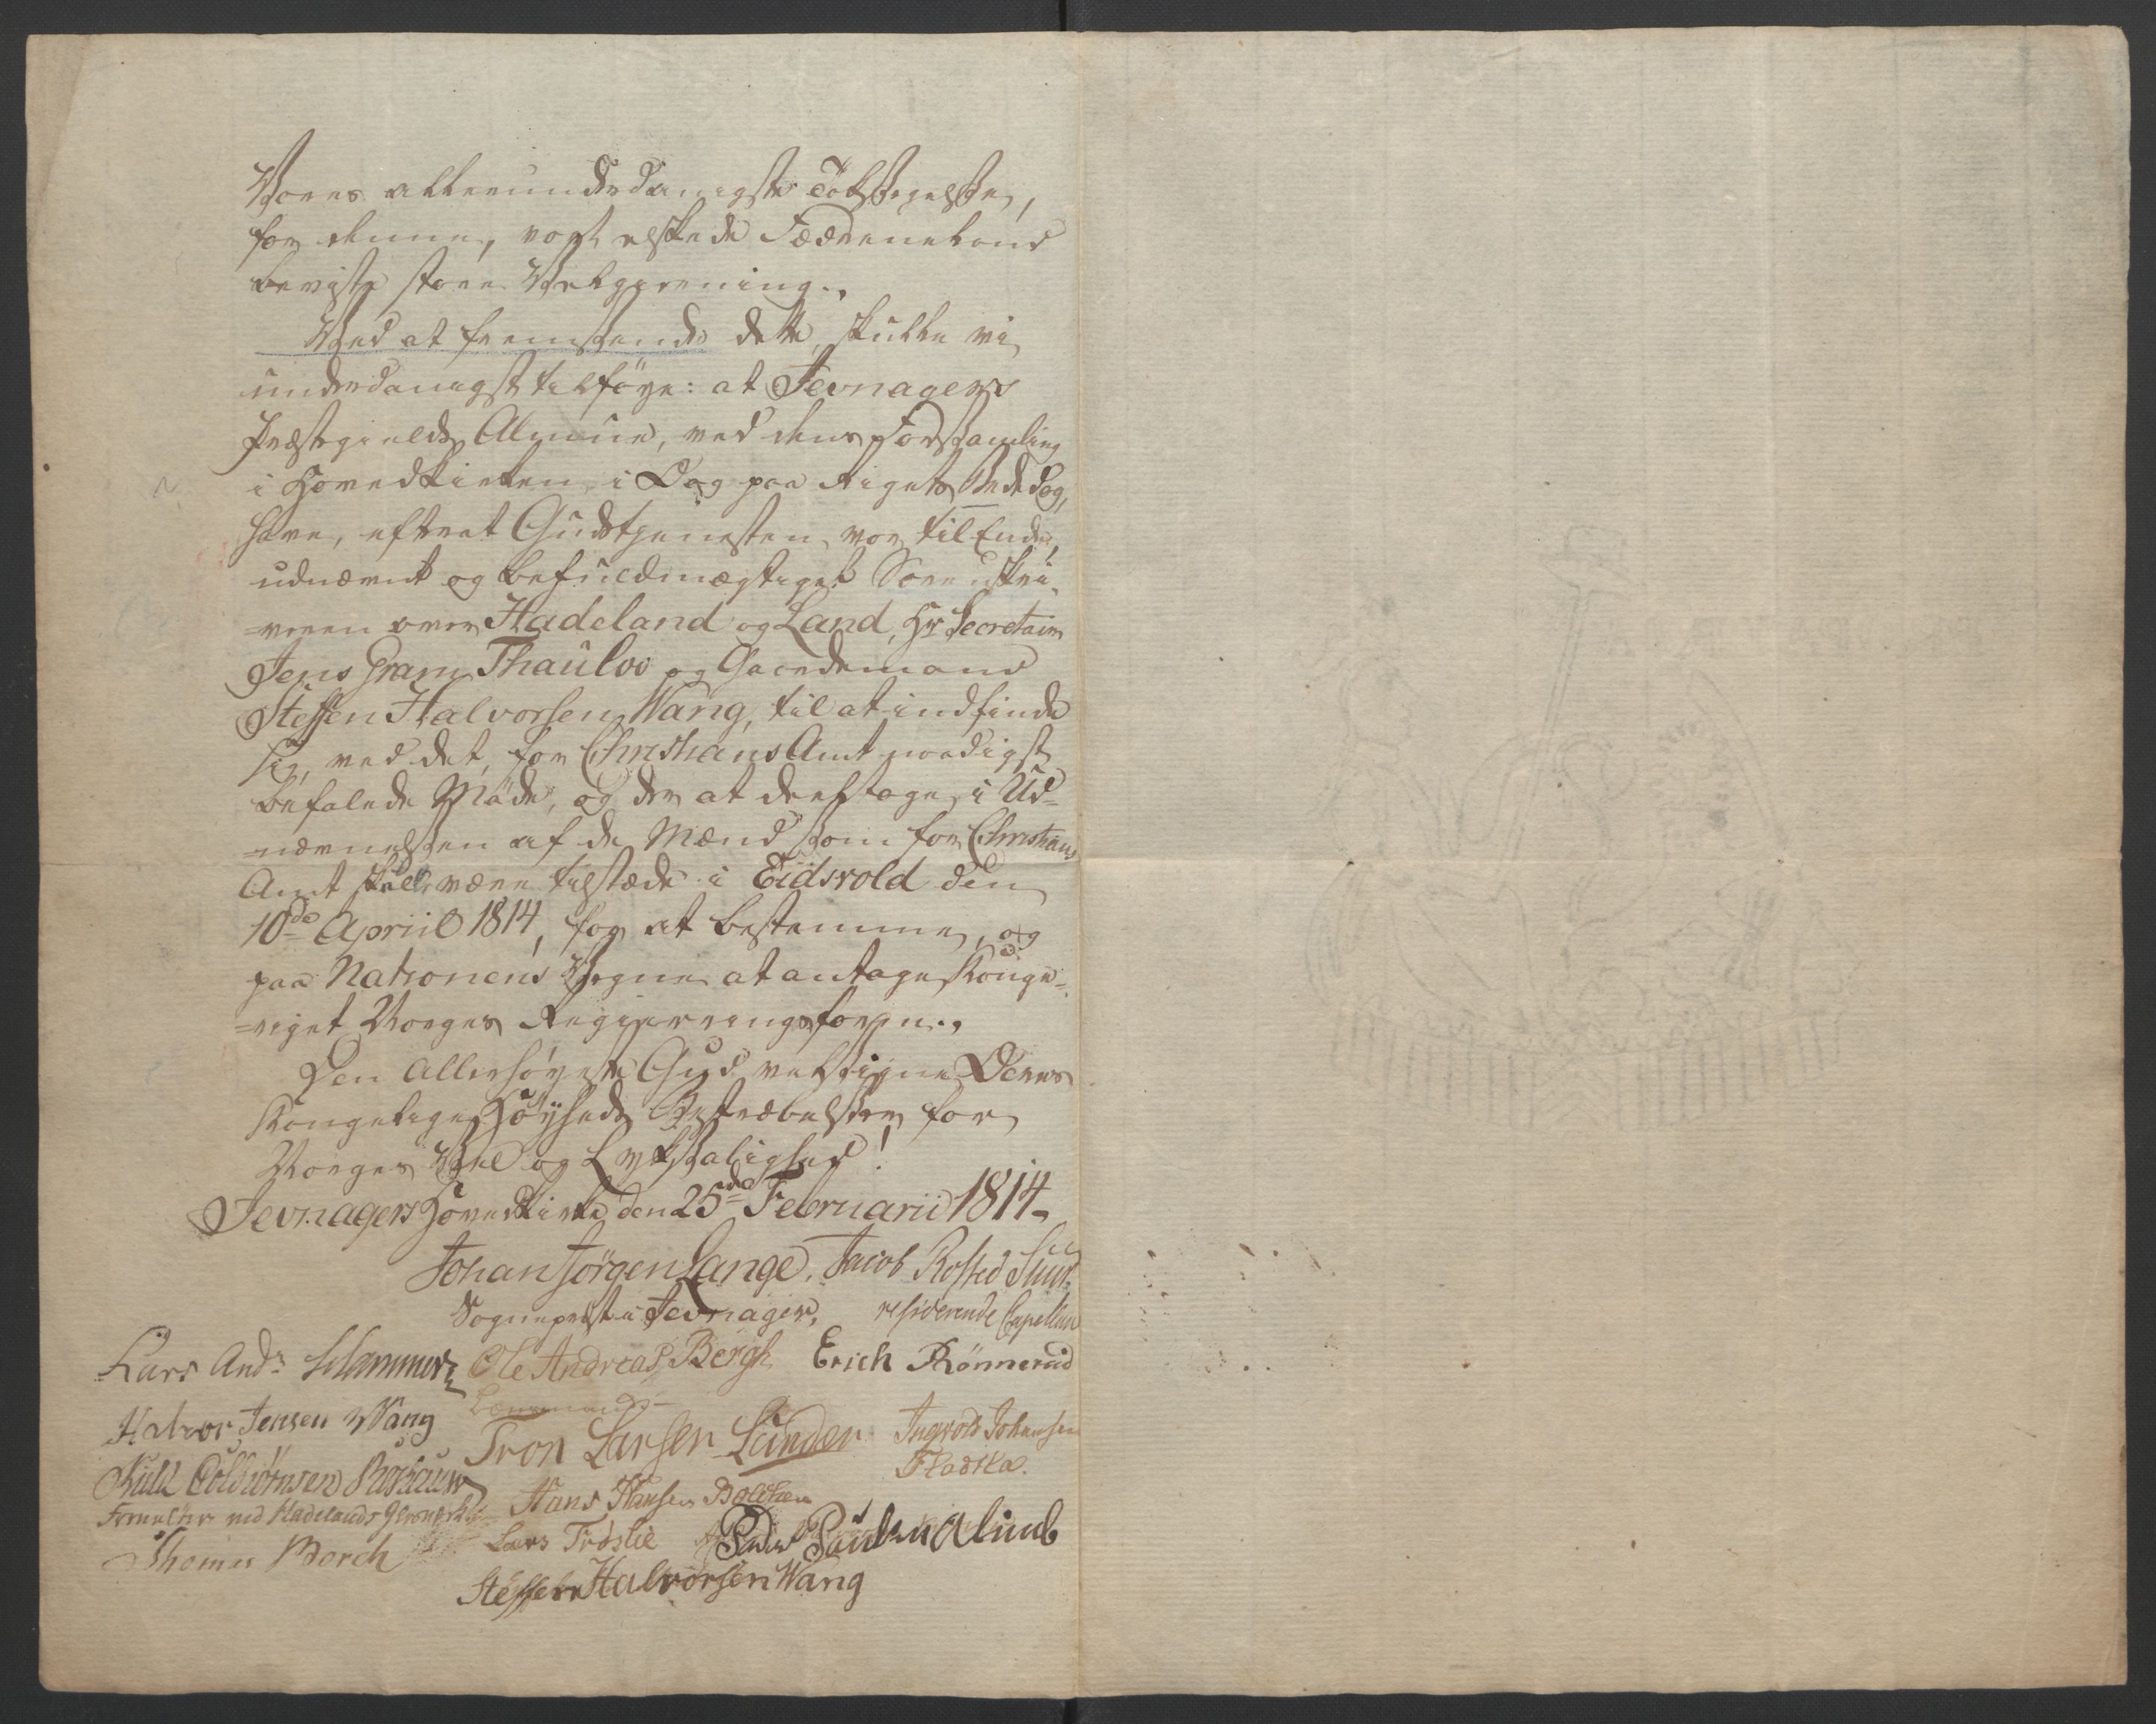 Vores allerunderdanigste Taksigelse,
for denne, vort elskede Fædreneland
beviiste store Velgierning.,
Ved at fremsende dette, skulle vi
underdanigst tilføye: at Jevnagers
Præstegields Almue, ved dens Forsamling
i Hovedkirken i Dag paa Rigets Bededag,
have, efterat Gudstjenesten var til Ende,
udnævnt og befuldmægtiget Sorenskri-
=veren over Hadeland og Land, Hr Secretair
Jens Gram Thaulow og Gaardemand
Steffen Halvorsen Wang, til at indfinde
sig, ved det, for Christians Amt naadigst
befalede Møde, og der at deeltage i Ud=
=nævnelsen af de Mænd som for Christians
Amt skulle være tilstæde i Eidsvold den
10de Apriil 1814, for at bestemme, og
paa Nationens Vegne at antage Konge=
=riget Norges Regieringsform.,
Den Allerhøyeste Gud velsigne Deres
Kongelige Høyheds Bestræbelser for
Norges Vel og Lyksalighed!
Jevnagers Hovedkirke den 25de Februarii 1814.
Johan Jörgen Lange. Jacob Rosted
Sognepræst i Jevnager. residerende Capellan
Lars Andr Hammer Ole Andreas Bergh Erich Rönnerud
Lænsmand
Halvor Jensen Wang
Tron Larsen Lunder Ingvold Johansen
Fladsla.
Forvalter ved Hadelands Glasværk Hans Hansen
Thomas Borch Lars Tröslie Peder Paulsen Alm
Steffen Halvorsen Wang